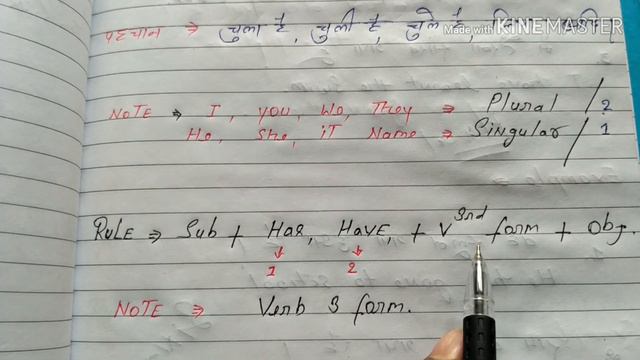 पहचान ⇒ चुका है, चुकी है, चुके है,
Made with KINEMASTER
NOTE ⇒ I, you, We, They ⇒ Plural / 2
He, She, iT Name ⇒ Singular / 1
RULE ⇒ Sub + Has, HAVE, + V 3rd form + Obj.
↓ ↓
1 2
NOTE ⇒ Verb 3 form.